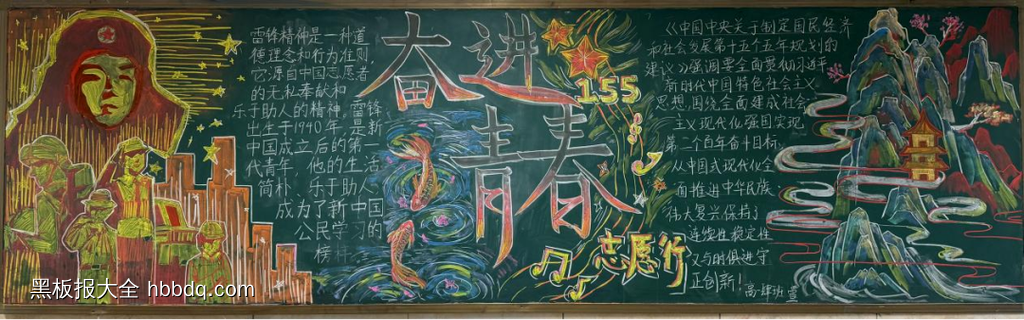 雷锋精神是一种道
德理念和行为准则,
它源自中国志愿者
的无私奉献和
乐于助人的精神。雷锋
出生于1940年,是新
中国成立后的第一
代青年,他的生活
简朴、乐于助人
成为了新中国
公民学习的
榜样
奋进
青春
155
志愿行
《中国中央关于制定国民经济
和社会发展第十五个五年规划的
建议》强调要全面贯彻习近平
新时代中国特色社会主义
思想,围绕全面建成社会
主义现代化强国实现
第二个百年奋斗目标,
以中国式现代化全
面推进中华民族
伟大复兴保持了
连续性稳定性
又与时俱进守
正创新!
黑板报大全 hbbdq.com